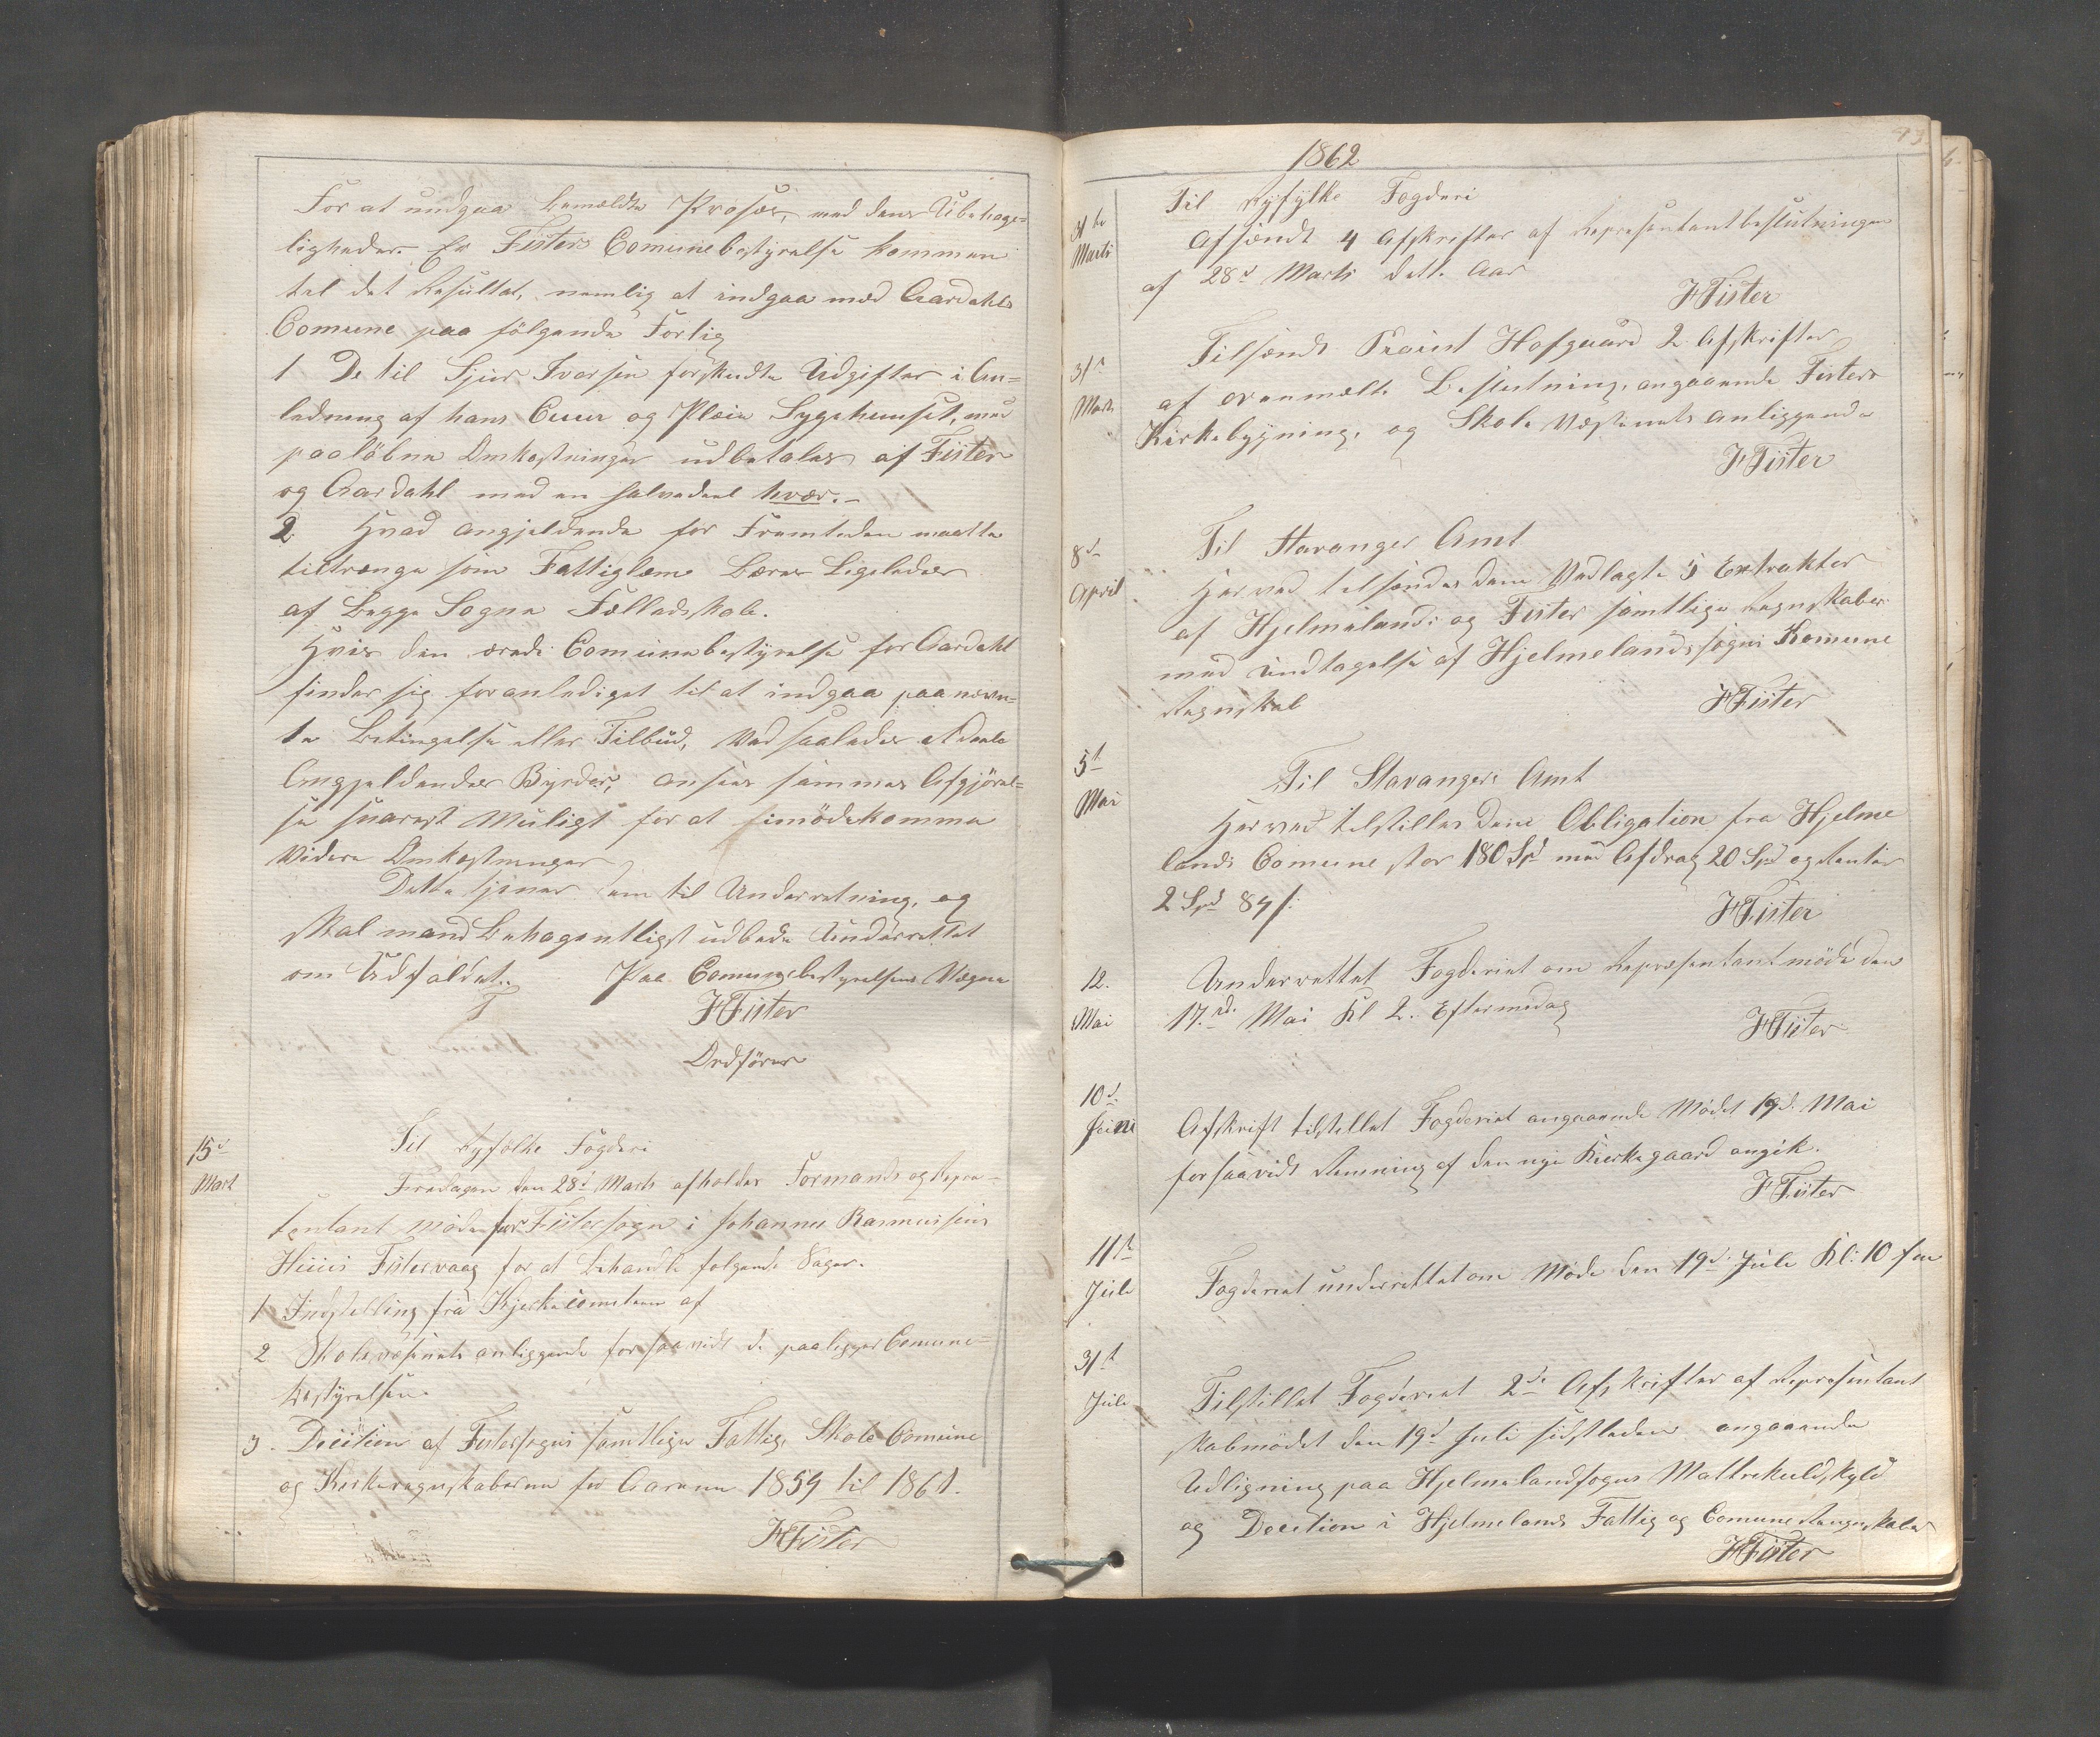 For at undgaa bemældte Prosæs, med dens Ubehage=
ligheder. Er Fisters Comunebestyrelse kommen
til det Resultat, nemlig at indgaa med Aardahls
Comune paa følgende Forlig
1 De til Sjur Ivarsen forskudte Udgifter i An=
ledning af hans Cuur og Pleie Sygehuuset, med
paaløbne Omkostninger udbetales af Fister
og Aardahl med en halvedeel hver. -
2. Hvad angjeldende for Fremtiden maatte
tiltrænge som Fattiglæm Bæres Ligeledes
af Begge Sogne Fælledskab.
Hvis den ærede Comunebestyrelse for Aardahl
finder sig foranlediget til at indgaa paa nævn=
te Betingelse eller Tilbud, ved saaledes at deele
Angjeldendes Byrder, ansees sammes Afgjørel=
se snarest Muligt for at imødekomme
Videre Omkostninger
Dette tjener dem til Underretning, og
skal mand Behageligst udbede Underrettet
om Udfaldet. Paa Comunebestyrelsens Vegne
HFister
Ordfører
15d
Mart
Til Ryfölke Fogderi
Fredagen den 28d Marts afholdes Formands og Repre=
sentant möde for Fistersogn i Johannes Rasmussens
Huus Fistervaag for at Behandle folgende Sager.
1 Indstelling fra Kjerkecomiteen af
2 Skolevæsenets anliggende for saavidt de paaligger Comune=
bestyrelsen.
3. Decition af Fistersogns samtlige Fattig, Skole Comune
og Kirkeregnskaberne for Aarene 1859 til 1861.
HFister
1862
31te
Marts
Til Ryfylke Fogderi
Afsendt 4 Afskrifter af Representantbeslutningen
af 28d Marts dette Aar
HFister
31te
Marts
Tilsendt Provst Hofgaard 2 Afskrifter
af ovenmeldte Beslutning, angaaende Fisters
Kirkebygning, og Skole Væsenets Anliggende
HFister
8d
April
Til Stavanger Amt
Herved tilsendes dem Vedlagte 5 Extrakter
af Hjelmelands og Fister samtlige Regnskaber
med undtagelse af Hjelmelandssogns Komune
Regnskab
HFister
5t
Mai
Til Stavangers Amt
Herved tilstilles dem Obligation fra Hjelme
lands Comune stor 180 Spd med Afdrag 20 Spd og Renter
2 Spd 84 s:
HFister
12.
Mai
Underrettet Fogderiet om Representantmöde den
17.de Mai Kl 2. Eftermedag
HFister
10d.
Juni
Afskrift tilstellet Fogderiet angaaende Mödet 19d. Mai
forsaavidt Remning af den nye Kirkegaard angik.
HFister
11te
Jule
Fogderiet underrettet om Möde den 19d. Jule Kl: 10 for
31t
Jule
Tilstillet Fogderiet 2de Afskrifter af Representant
skabmödet den 19d Juli sidstleden angaaende
Udligning paa Hjelmelandsogns Mattrekuldskyld
og Decition i Hjelmelands Fattig og Comune Rægnskaber
HFister